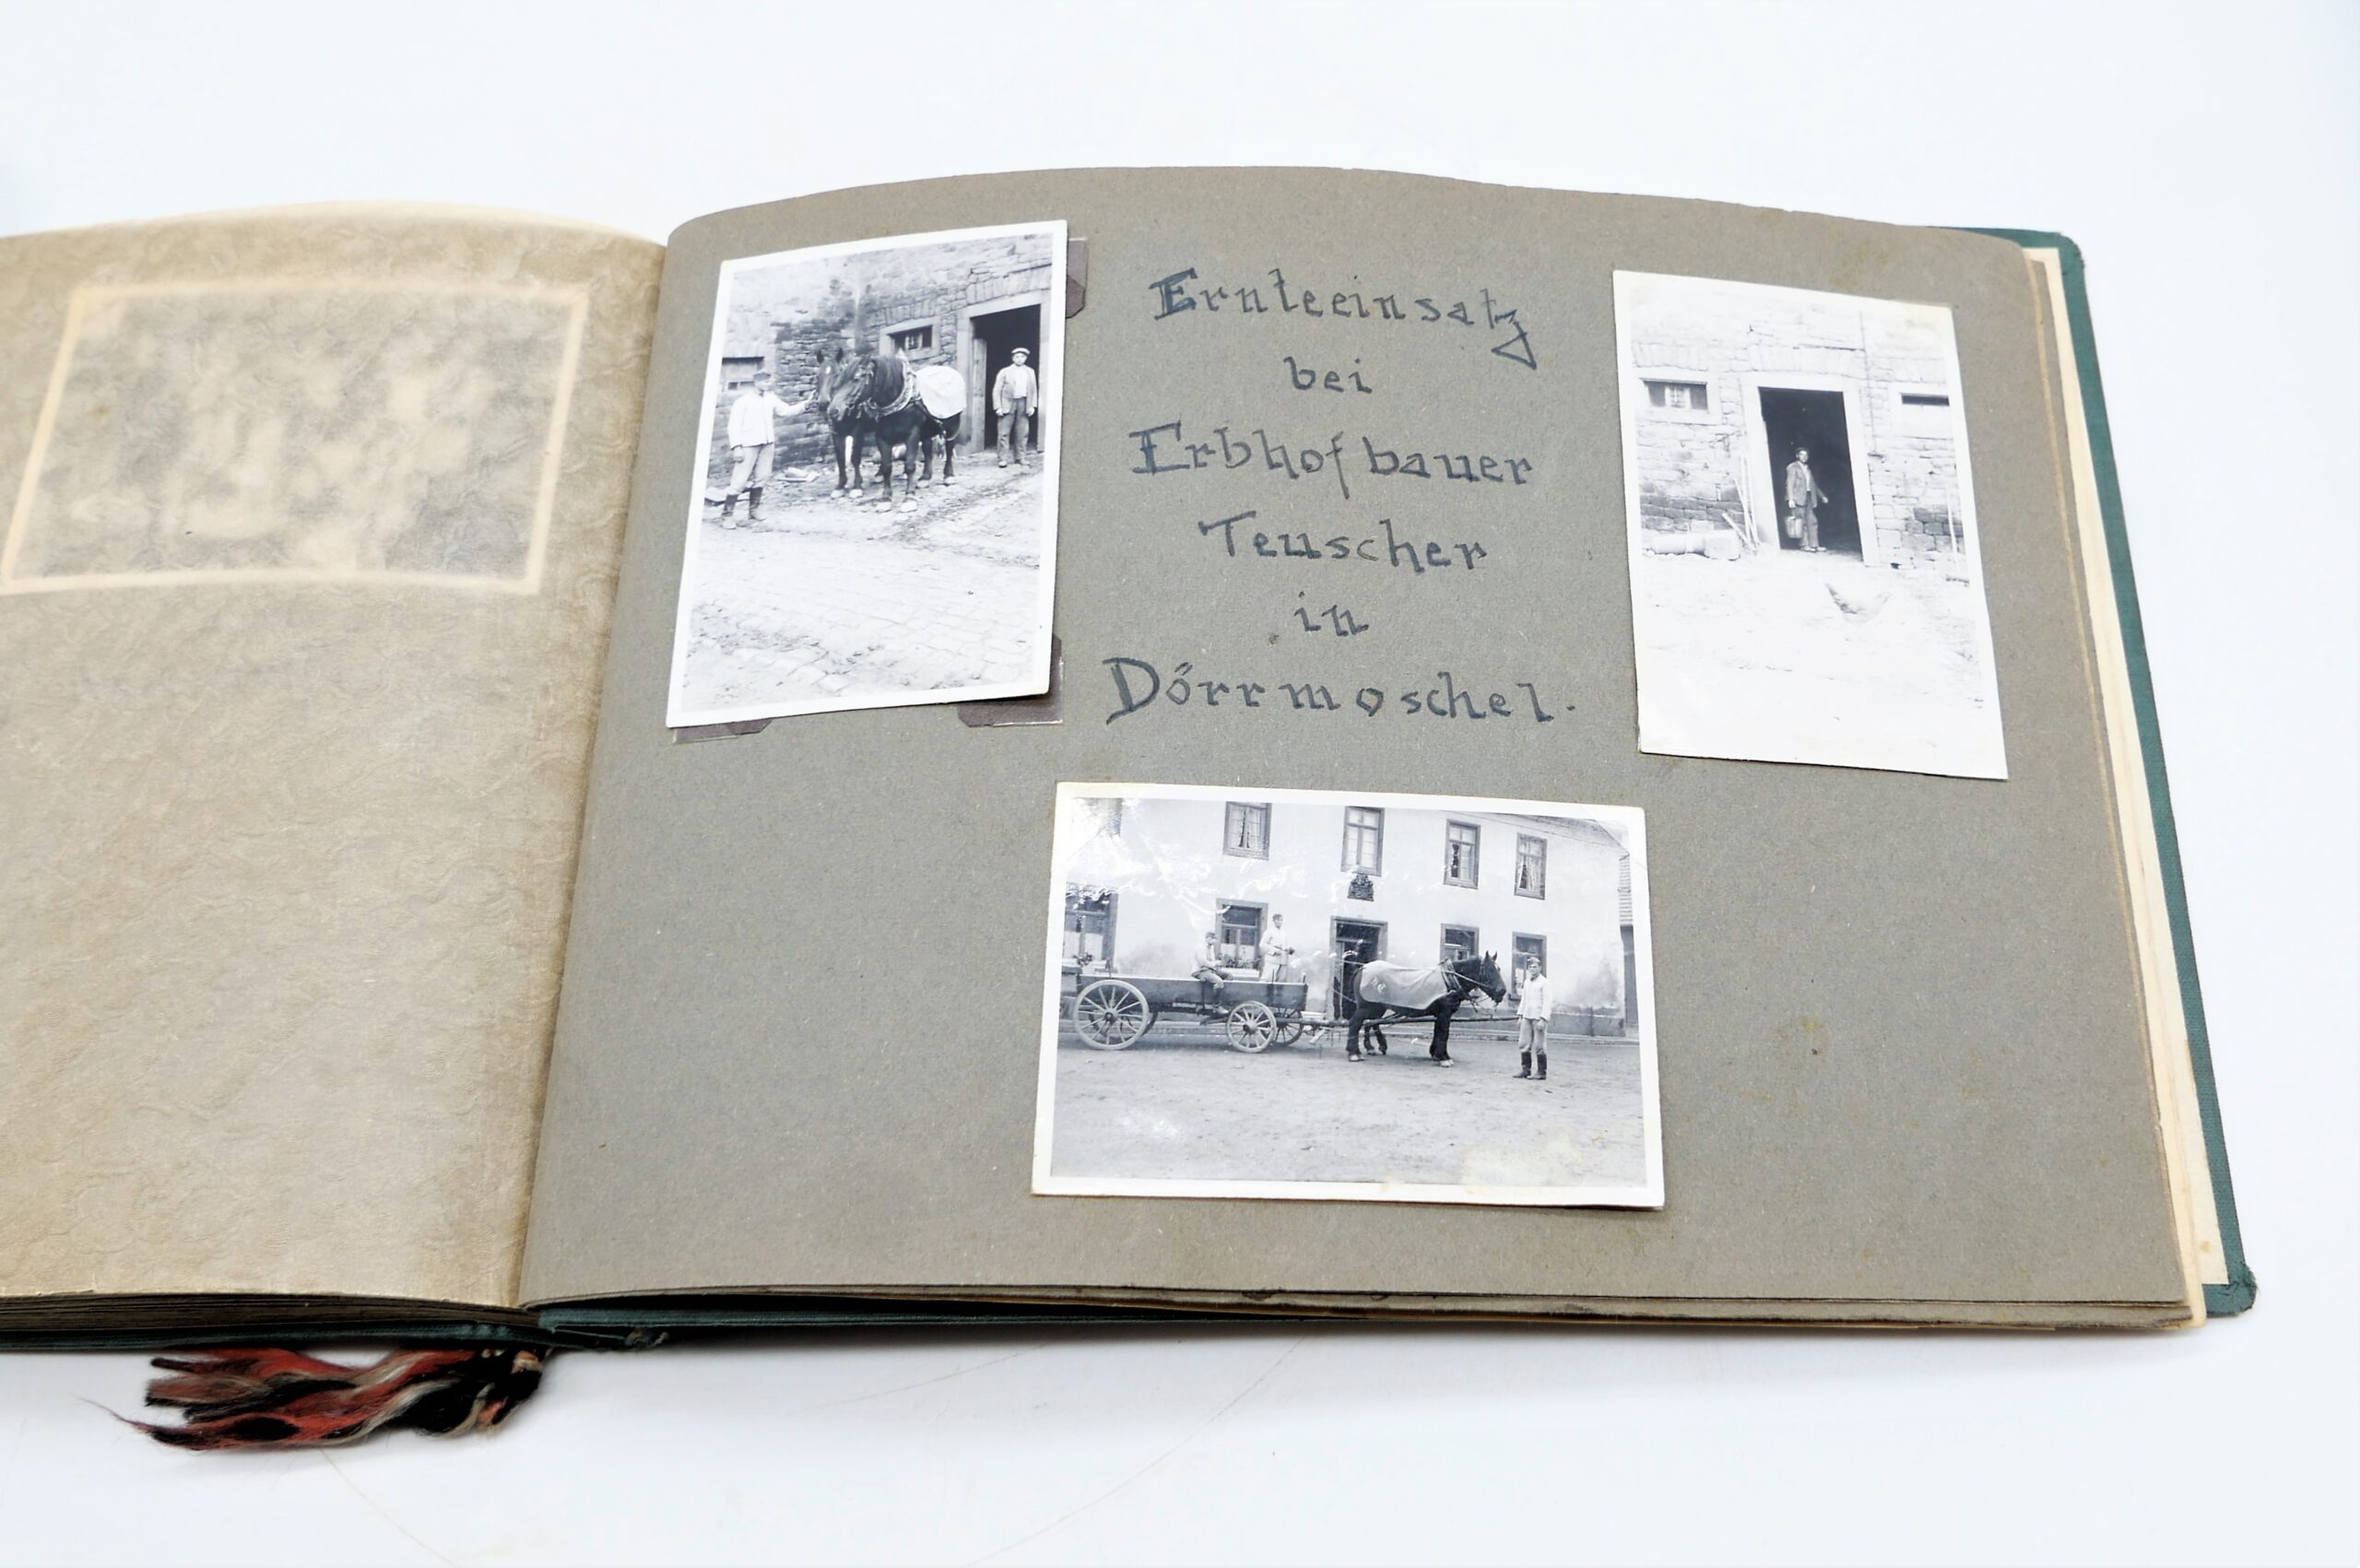 Ernteeinsatz
bei
Erbhofbauer
Teuscher
in
Dörrmoschel.